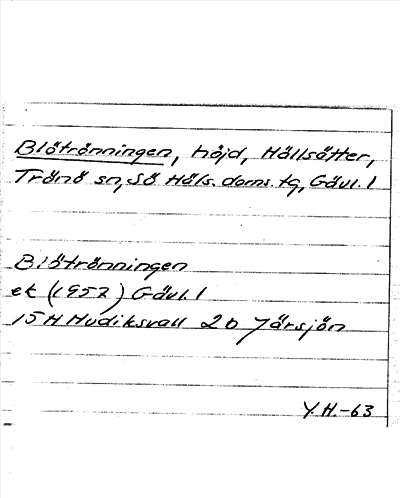 Blötrönningen, höjd, Hällsätter,
Trönö sn, Sö Häls. doms. tg, Gävl. l
Blötrönningen
ek (1957) Gävl. l
15H Hudiksvall 2b Järsjön
Y.H.-63